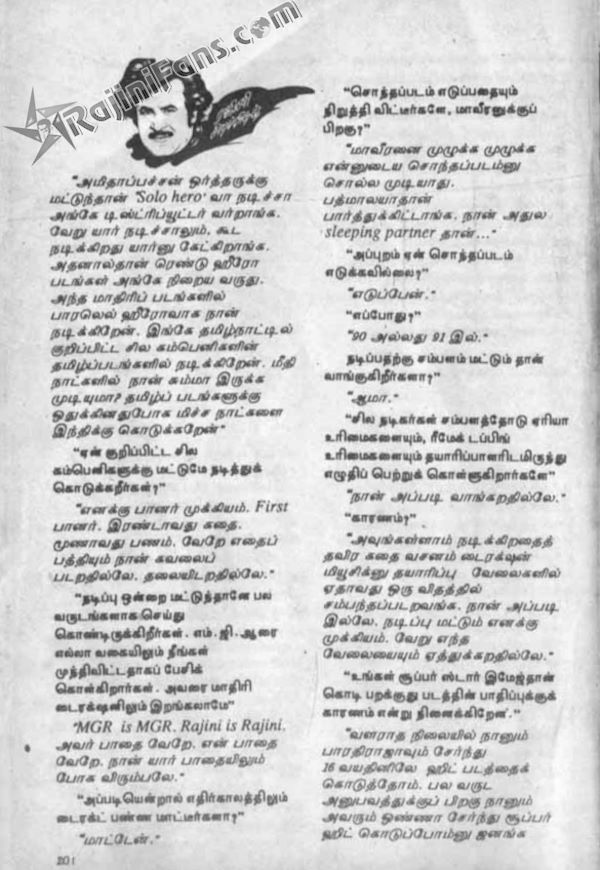 RajiniFans.com
"அமிதாப்பச்சன் ஒர்த்தருக்கு
மட்டுந்தான் 'Solo hero' வா நடிச்சா
அங்கே டிஸ்ட்ரிப்யூட்டர் வர்றாங்க.
வேறு யார் நடிச்சாலும், கூட
நடிக்கிறது யார்னு கேட்கிறாங்க.
அதனால்தான் ரெண்டு ஹீரோ
படங்கள் அங்கே நிறைய வருது.
அந்த மாதிரிப் படங்களில்
பாரலெல் ஹீரோவாக நான்
நடிக்கிறேன். இங்கே தமிழ்நாட்டில்
குறிப்பிட்ட சில கம்பெனிகளின்
தமிழ்ப்படங்களில் நடிக்கிறேன். மீதி
நாட்களில் நான் சும்மா இருக்க
முடியுமா? தமிழ்ப் படங்களுக்கு
ஒதுக்கினதுபோக மிச்ச நாட்களை
இந்திக்கு கொடுக்கறேன்"
"ஏன் குறிப்பிட்ட சில
கம்பெனிகளுக்கு மட்டுமே நடித்துக்
கொடுக்கறீர்கள்?"
"எனக்கு பானர் முக்கியம். First
பானர். இரண்டாவது கதை.
மூணாவது பணம். வேறே எதைப்
பத்தியும் நான் கவலைப்
படறதில்லே. தலையிடறதில்லே."
"நடிப்பு ஒன்றை மட்டுந்தானே பல
வருடங்களாக செய்து
கொண்டிருக்கிறீர்கள். எம்.ஜி.ஆரை
எல்லா வகையிலும் நீங்கள்
முந்திவிட்டதாகப் பேசிக்
கொள்கிறார்கள். அவரை மாதிரி
டைரக்ஷனிலும் இறங்கலாமே"
"MGR is MGR. Rajini is Rajini.
அவர் பாதை வேறே. என் பாதை
வேறே. நான் யார் பாதையிலும்
போக விரும்பலே."
"அப்படியென்றால் எதிர்காலத்திலும்
டைரக்ட் பண்ண மாட்டீர்களா?"
"மாட்டேன்."
201
"சொத்தப்படம் எடுப்பதையும்
நிறுத்தி விட்டீர்களே, மாவீரனுக்குப்
பிறகு?"
"மாவீரனை முழுக்க முழுக்க
என்னுடைய சொந்தப்படம்னு
சொல்ல முடியாது.
பத்மாலயாதான்
பார்த்துக்கிட்டாங்க. நான் அதுல
sleeping partner தான்..."
"அப்புறம் ஏன் சொத்தப்படம்
எடுக்கவில்லை?"
"எடுப்பேன்."
"எப்போது?"
"90 அல்லது 91 இல்."
நடிப்பதற்கு சம்பளம் மட்டும் தான்
வாங்குகிறீர்களா?"
"ஆமா."
"சில நடிகர்கள் சம்பளத்தோடு ஏரியா
உரிமைகளையும், ரீமேக் டப்பிங்
உரிமைகளையும் தயாரிப்பாளரிடமிருந்து
எழுதிப் பெற்றுக் கொள்ளுகிறார்களே"
"நான் அப்படி வாங்கறதில்லே."
"காரணம்?"
"அவுங்கள்ளாம் நடிக்கிறதைத்
தவிர கதை வசனம் டைரக்ஷன்
மியூசிக்னு தயாரிப்பு வேலைகளில்
ஏதாவது ஒரு விதத்தில்
சம்பந்தப்படறவங்க. நான் அப்படி
இல்லே. நடிப்பு மட்டும் எனக்கு
முக்கியம். வேறு எந்த
வேலையையும் ஏத்துக்கறதில்லே."
"உங்கள் சூப்பர் ஸ்டார் இமேஜ்தான்
கொடி பறக்குது படத்தின் பாதிப்புக்குக்
காரணம் என்று நினைக்கிறேன்."
"வளராத நிலையில் நானும்
பாரதிராஜாவும் சேர்ந்து
16 வயதினிலே ஹிட் படத்தைக்
கொடுத்தோம். பல வருட
அனுபவத்துக்குப் பிறகு நானும்
அவரும் ஒண்ணா சேர்ந்து சூப்பர்
ஹிட் கொடுப்போம்னு ஜனங்க